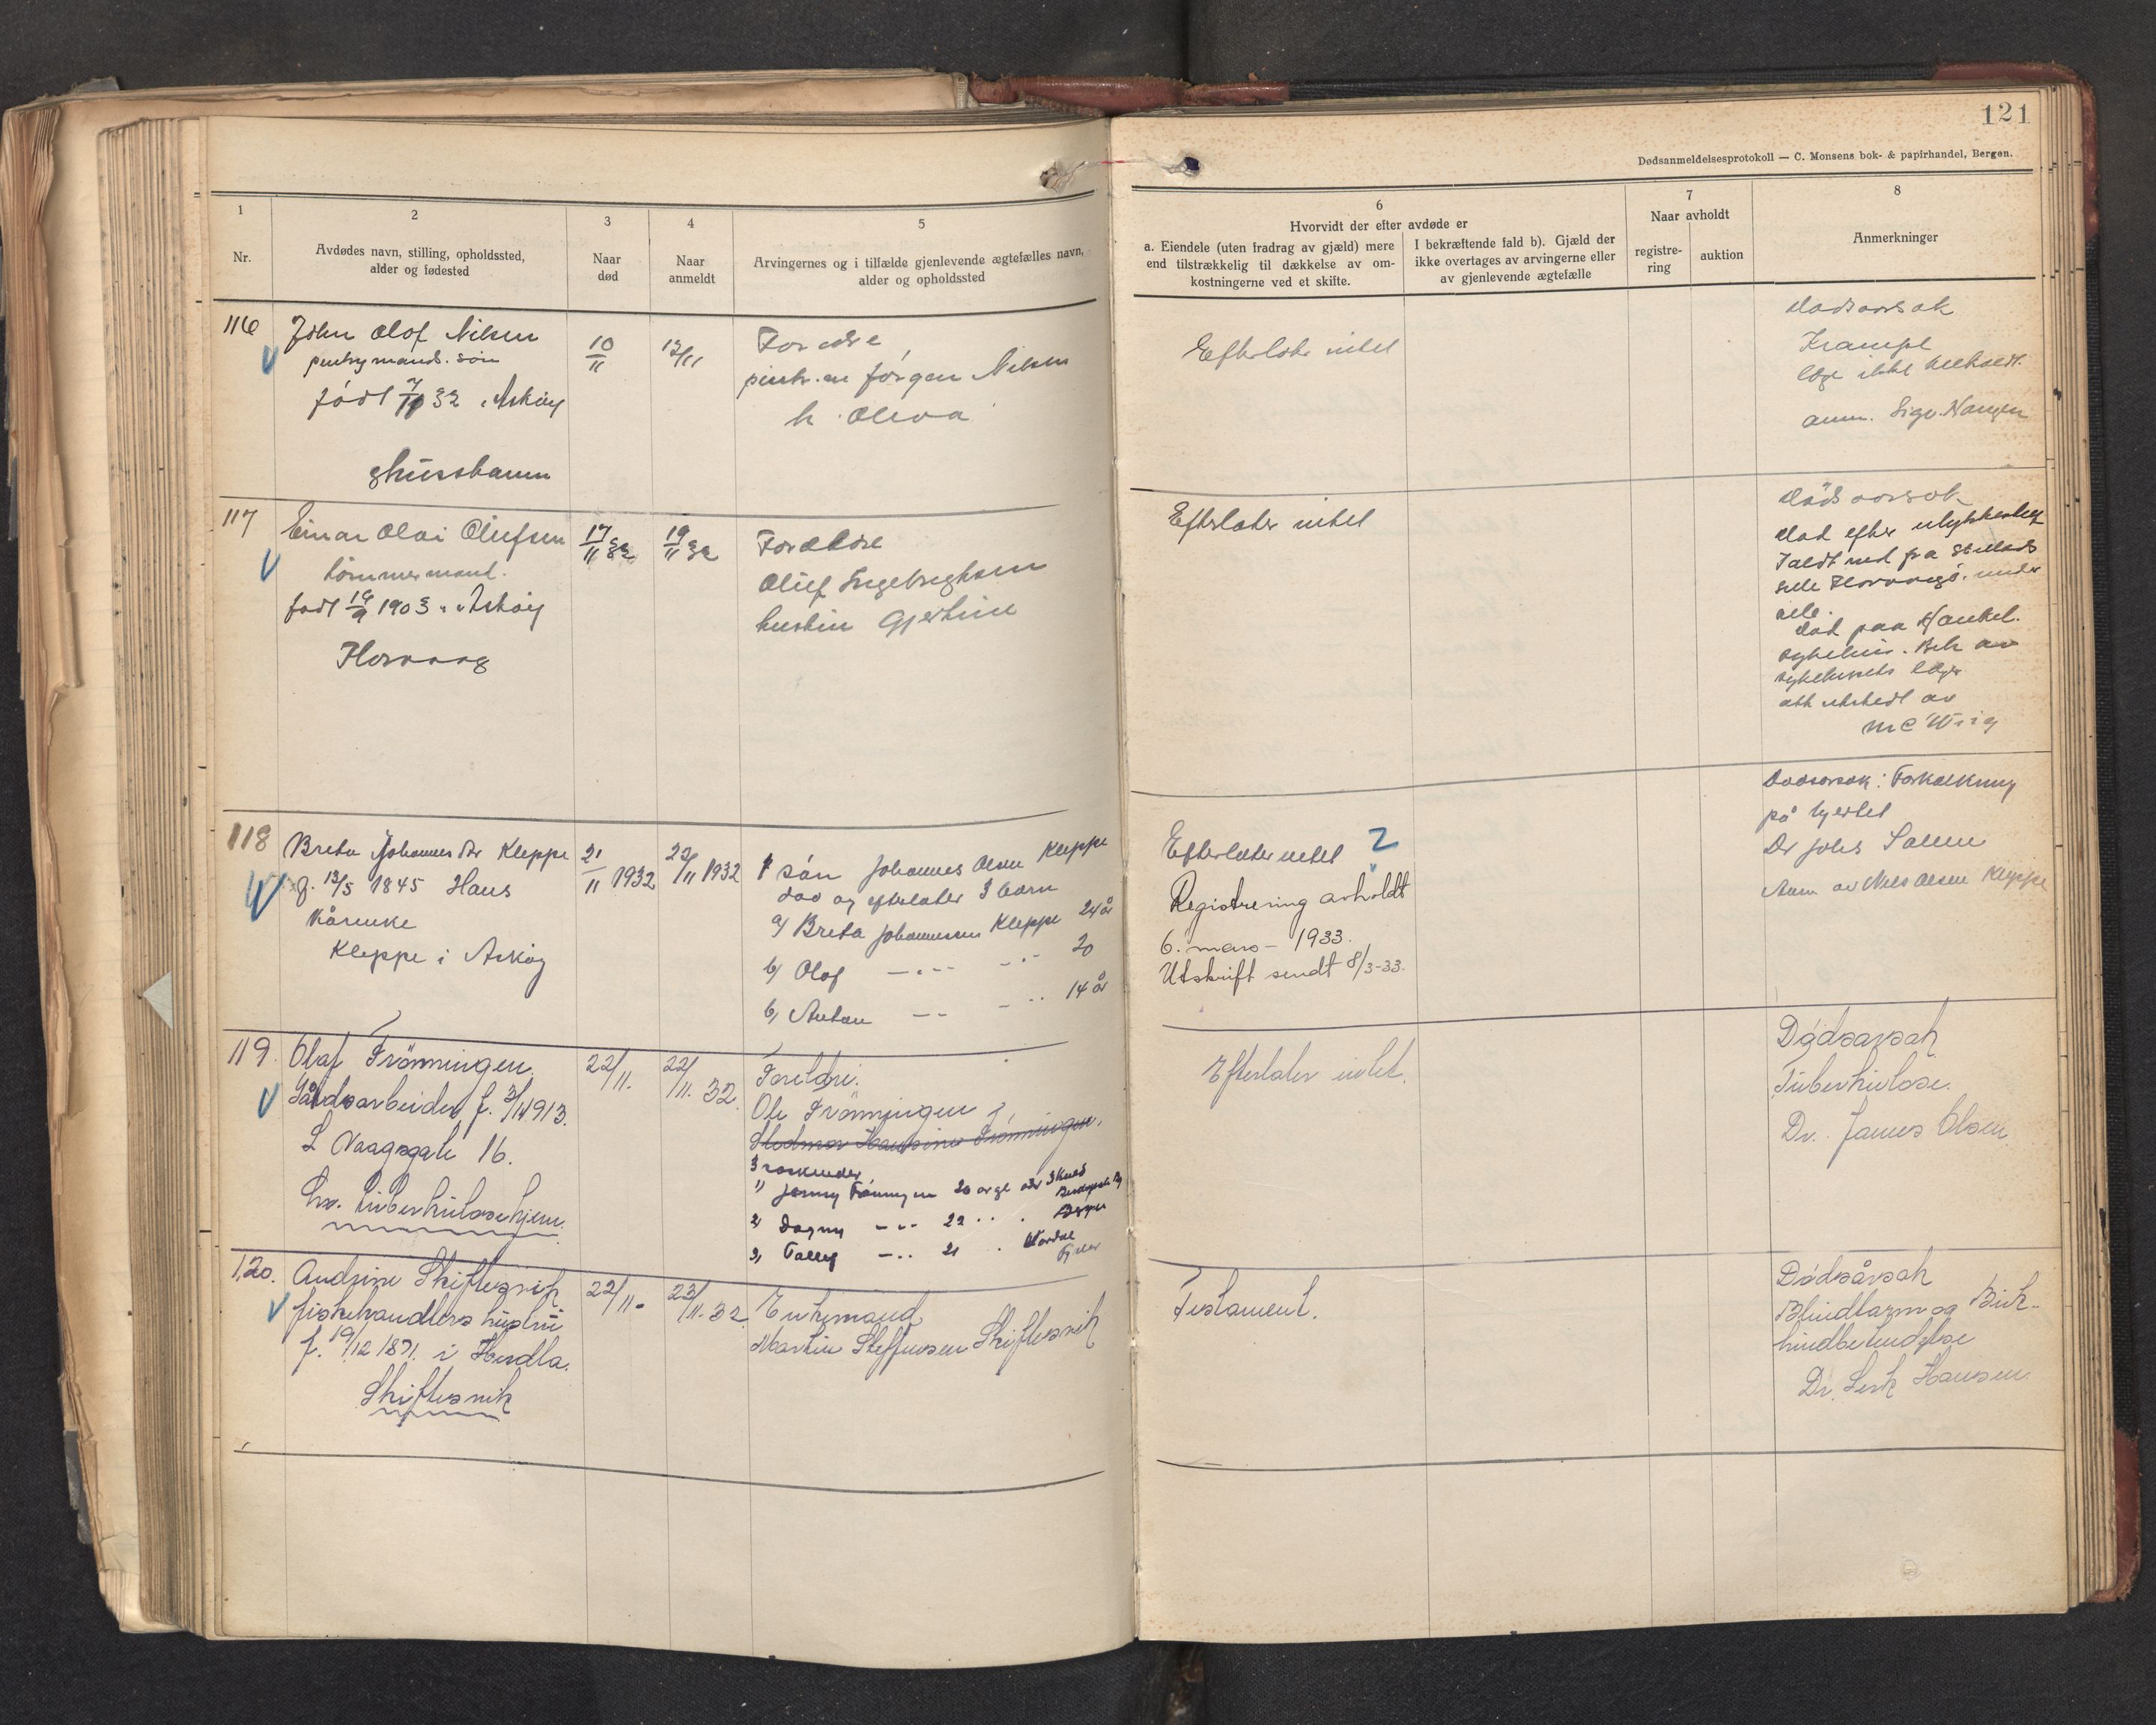 121
Dødsanmeldelsesprotokoll — C. Monsens bok- & papirhandel, Bergen.
1
Nr.
2
Avdødes navn, stilling, opholdssted,
alder og fødested
3
Naar
død
4
Naar
anmeldt
5
Arvingernes og i tilfælde gjenlevende ægtefælles navn,
alder og opholdssted
6
Hvorvidt der efter avdøde er
a. Eiendele (uten fradrag av gjæld) mere
end tilstrækkelig til dækkelse av om-
kostningerne ved et skifte.
I bekræftende fald b). Gjæld der
ikke overtages av arvingerne eller
av gjenlevende ægtefælle
7
Naar avholdt
registre-
ring
auktion
8
Anmerkninger
116
John Olof Nilsen
pentrymands. søn
født 7/11 32 i Askøy
10/11
12/11
Forældre
Jørgen Nilsen
h. Oleva
Efterlater intet
Dødsaarsak
Krampe
læge ikke
anm. Sigv. Nilsen
117
Einar Olai Olufsen
tømmermand.
født 19/9 1903 i Askøy
Florvaag
17/11 32
19/11 32
Forældre
Oluf Engebregtsen
hustru Gjertine
Efterlater intet
Dødsaarsak
død efter ulykkestilf
Faldt ned fra
død paa Haukel.
sykehus. Beh av
sykehusets læge
att utstedt av
118
Breta Johannesdtr Kleppe
f. 13/5 1845 Haus
Kårenke
Kleppe i Askøy
21/11 1932
22/11 1932
1 søn Johannes Olsen Kleppe
død og efterlater 3 barn
a) Breta Johannessen Kleppe 24 år
b) Olof —"— —"— 20
6) Anton —— —"— 14 år
Efterlater intet ?
Registrering avholdt
6. mars - 1933.
Utskrift sendt 8/3-33.
Dødsorsak: Forkalkning
på hjertet
Dr Johs Salen
Anm av Nils Olsen Kleppe
119.
Olaf Frønningen.
Gårdsarbeider f. 3/1 1913.
L Vaagsgate 16.
Tuberkulosehjem.
22/11.
22/11. 32.
Foreldre.
Ole Frønningen
Hansine Frønningen.
3 søskender
1) Jenny Frønningen 20
2) Dagny —"— 22
3) —"— 21
Efterlater intet.
Dødsårsak
Tuberkulose.
Dr. James Olsen
120.
Andrine Skiftesvik
fiskehandlers hustru
f. 19/12 1871. i Herdla.
Skiftesvik
22/11.
23/11. 32.
Enkemand
Martin Steffensen Skiftesvik
Testament.
Dødsårsak
Blindtarm og Buk-
hindbetendelse
Dr. Hansen.